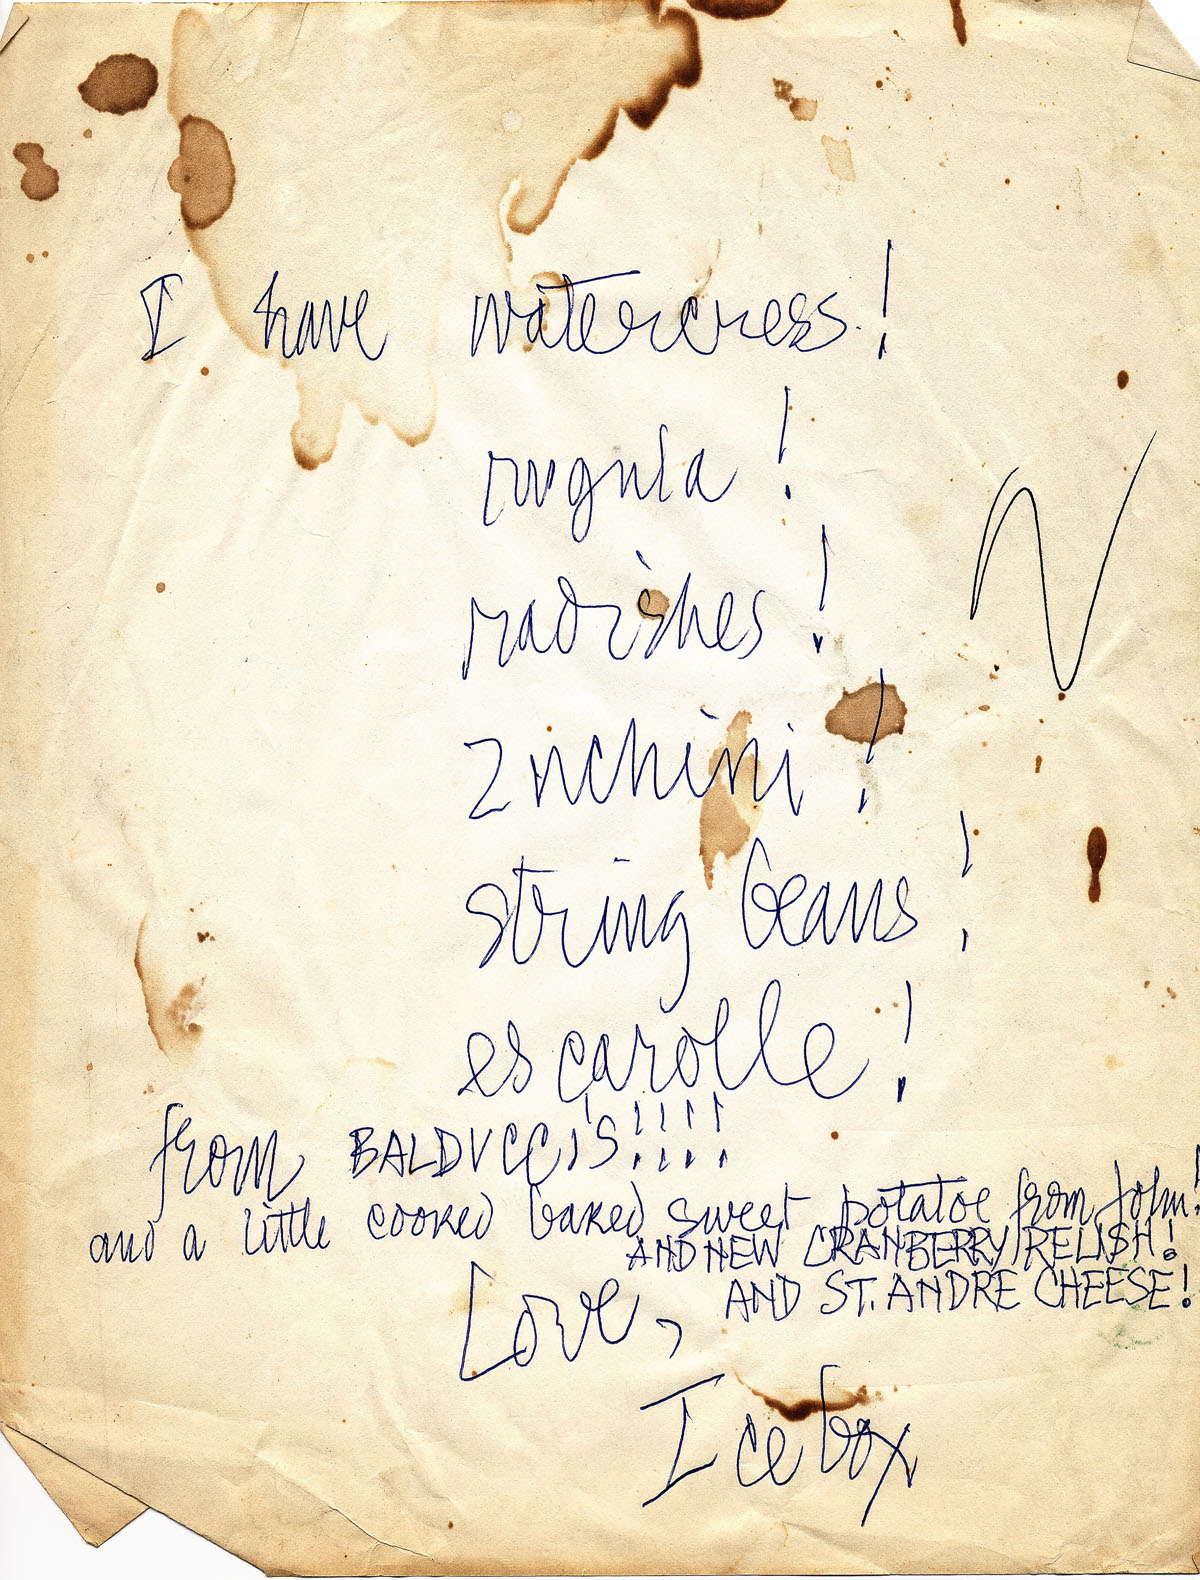 I have watercress!
rugula!
radishes!
zuchini!
string beans!
escarolle!
from BALDUCCI'S!!!!
and a little cooked baked sweet potatoe from John!
AND NEW CRANBERRY RELISH!
AND ST. ANDRE CHEESE!
Love,
Icebox